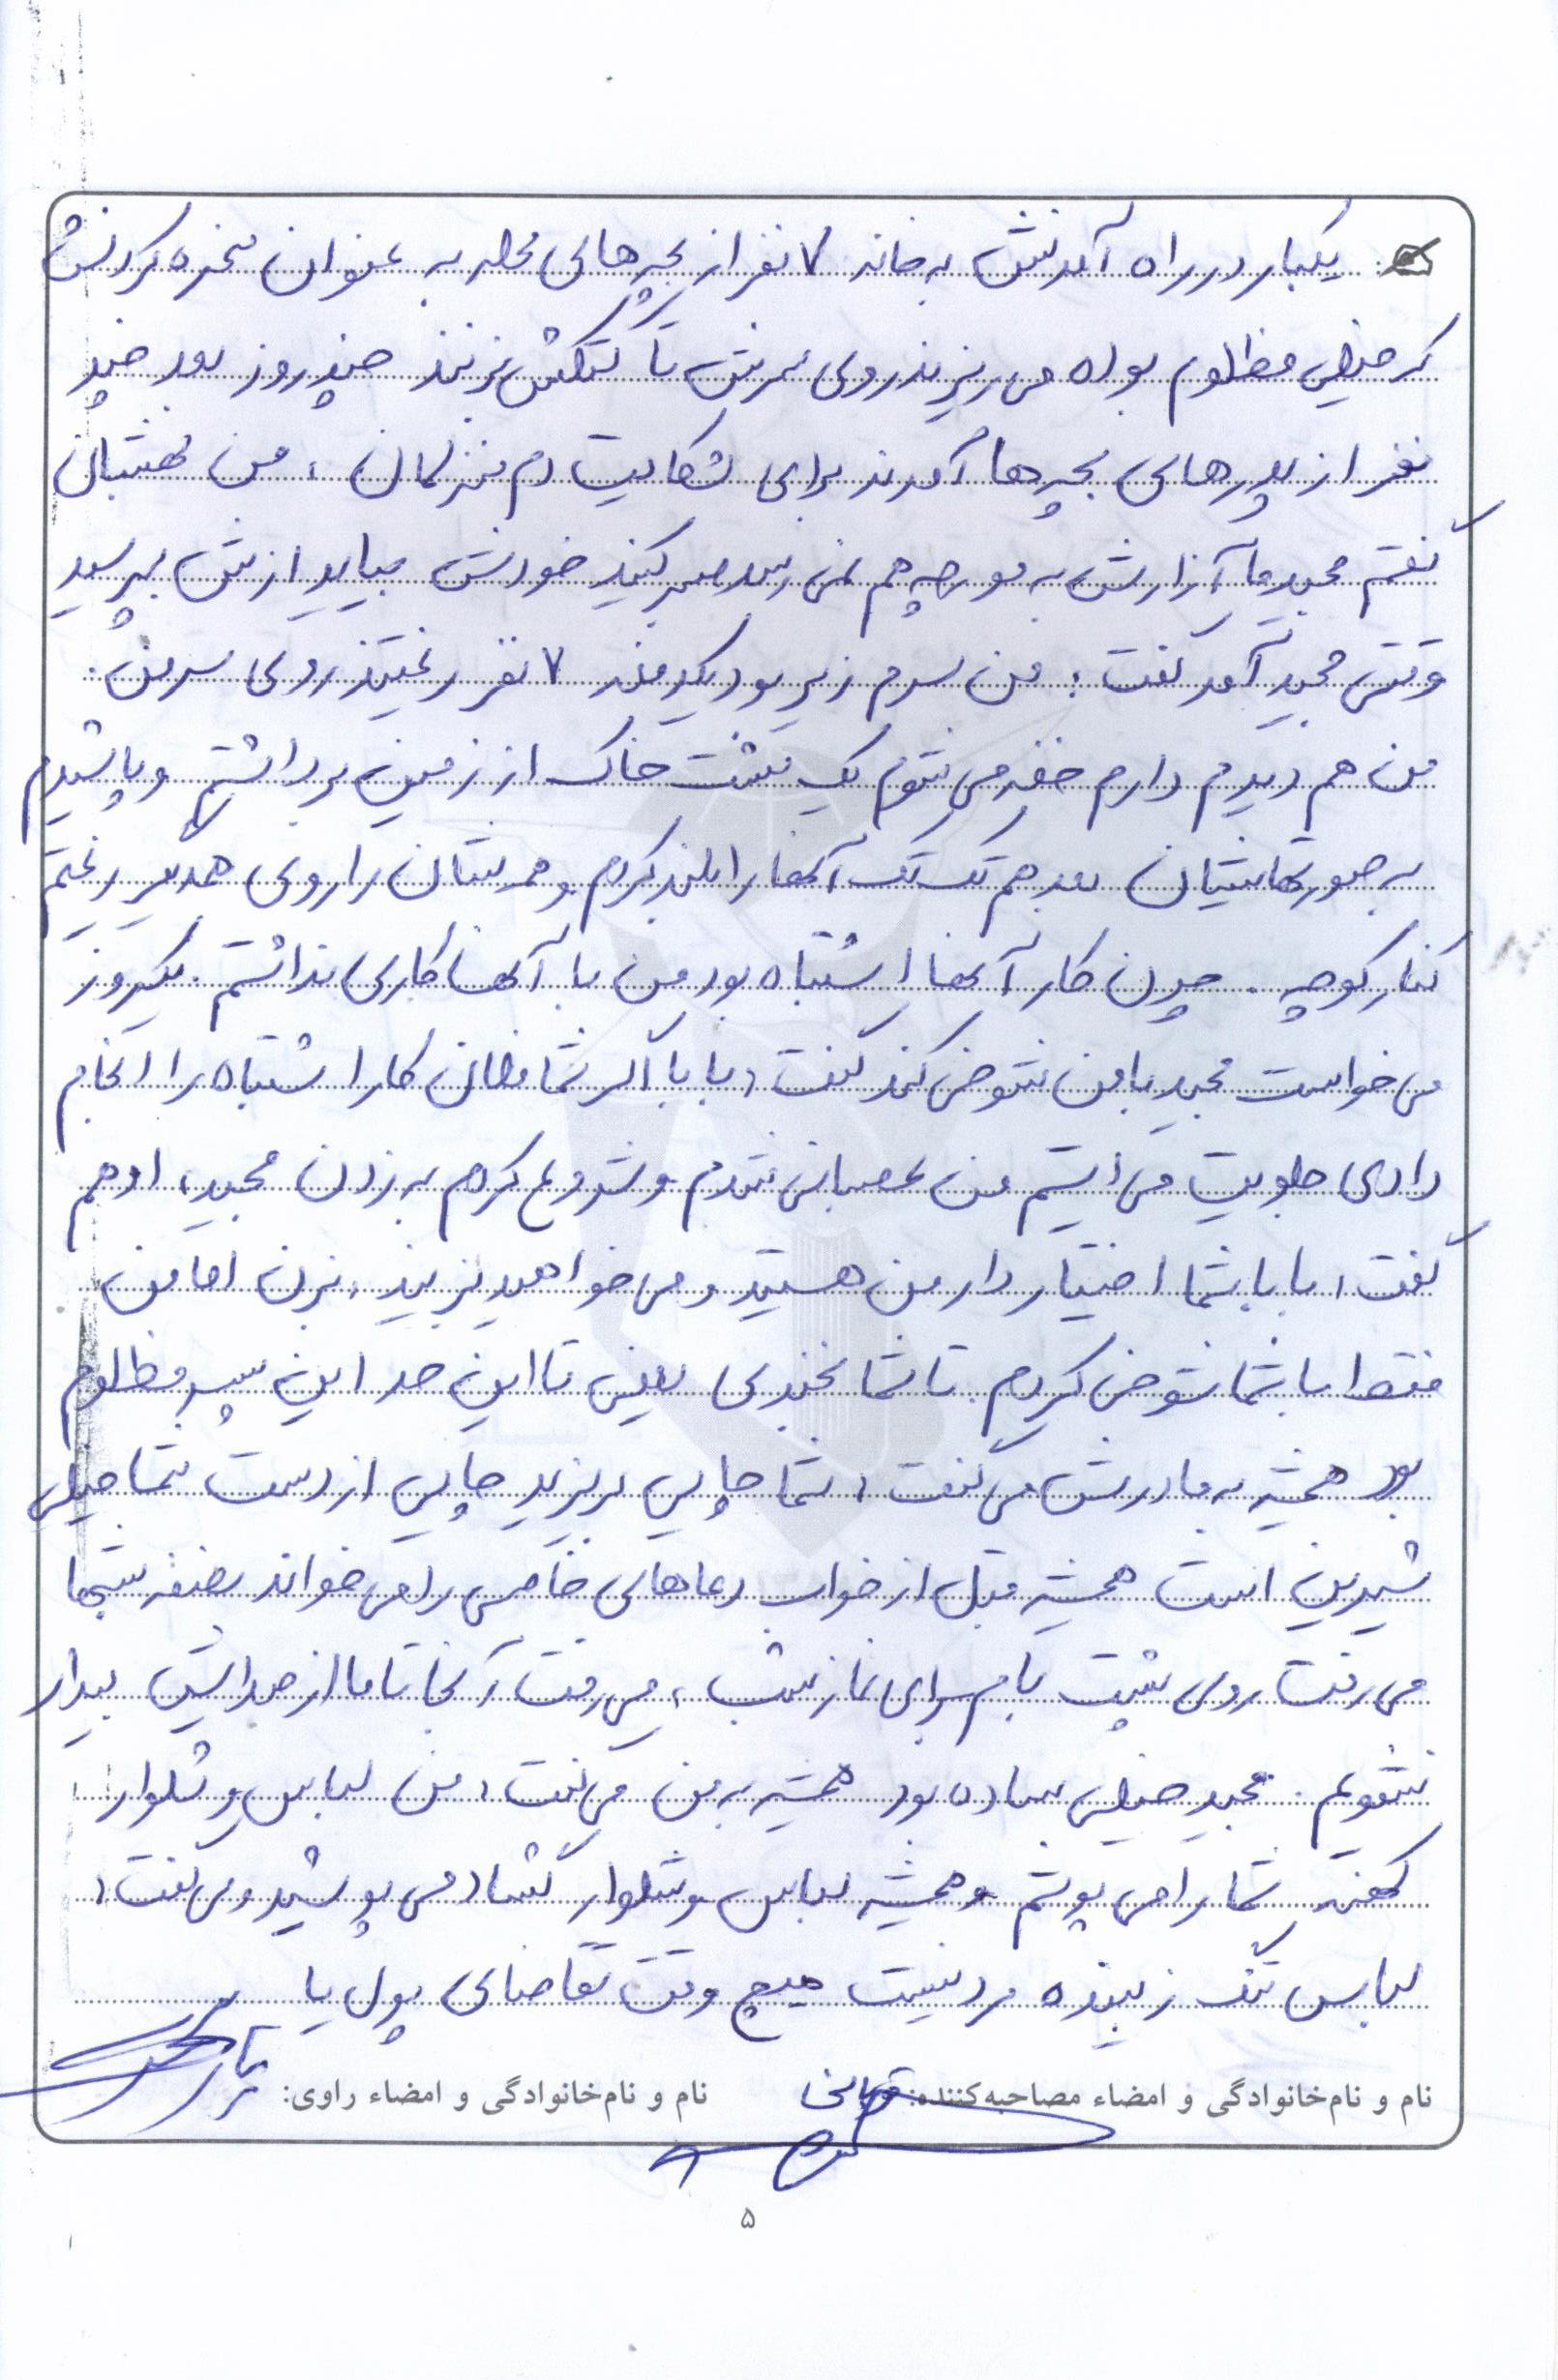 یکبار در راه آمدنش به خانه ۷ نفر از بچه‌های محله به عنوان مسخره کردنش
که خیلی مظلوم بوده می‌ریزند روی سرش تا کتکش بزنند چند روز بعد چند
نفر از پدرهای بچه‌ها آمدند برای شکایت دم منزلمان، من بهشان
گفتم مجید ما آزارش به مورچه هم نمی‌رسد صبر کنید خودش بیاید ازش بپرسید
وقتی مجید آمد گفت: من سرم زیر بود یکدفعه ۷ نفر ریختند روی سر من.
من هم دیدم دارم خفه می‌شوم یک مشت خاک از زمین برداشتم و پاشیدم
به صورتهایشان بعد هم تک تک آنها را بلند کردم و همه‌شان را روی همدیگر ریختم
کنار کوچه. چون کار آنها اشتباه بود من با آنها کاری نداشتم. یکروز
می‌خواست مجید با من شوخی کند گفت، بابا اگر شما فلان کار اشتباه را انجام
دادی جلویت می‌ایستم من عصبانی شدم و شروع کردم به زدن مجید، او هم
گفت، بابا شما اختیاردار من هستید و می‌خواهید بزنید، بزن اما من
فقط با شما شوخی کردم تا شما بخندی یعنی تا این حد این پسر مظلوم
بود همیشه به مادرش می‌گفت، شما چایی بریزید چایی از دست شما خیلی
شیرین است همیشه قبل از خواب دعاهای خاصی را می‌خواند نصفه شبها
می‌رفت روی پشت بام برای نماز شب، می‌رفت آنجا تا ما از صدایش بیدار
نشویم. مجید خیلی ساده بود همیشه به من می‌گفت، من لباس و شلوار
کهنه شما را می‌پوشم و همیشه لباس و شلوار گشاد می‌پوشید و می‌گفت،
لباس تنگ زیبنده مرد نیست هیچ وقت تقاضای پول یا
نام و نام‌خانوادگی و امضاء مصاحبه‌کننده: نام و نام‌خانوادگی و امضاء راوی:
۵